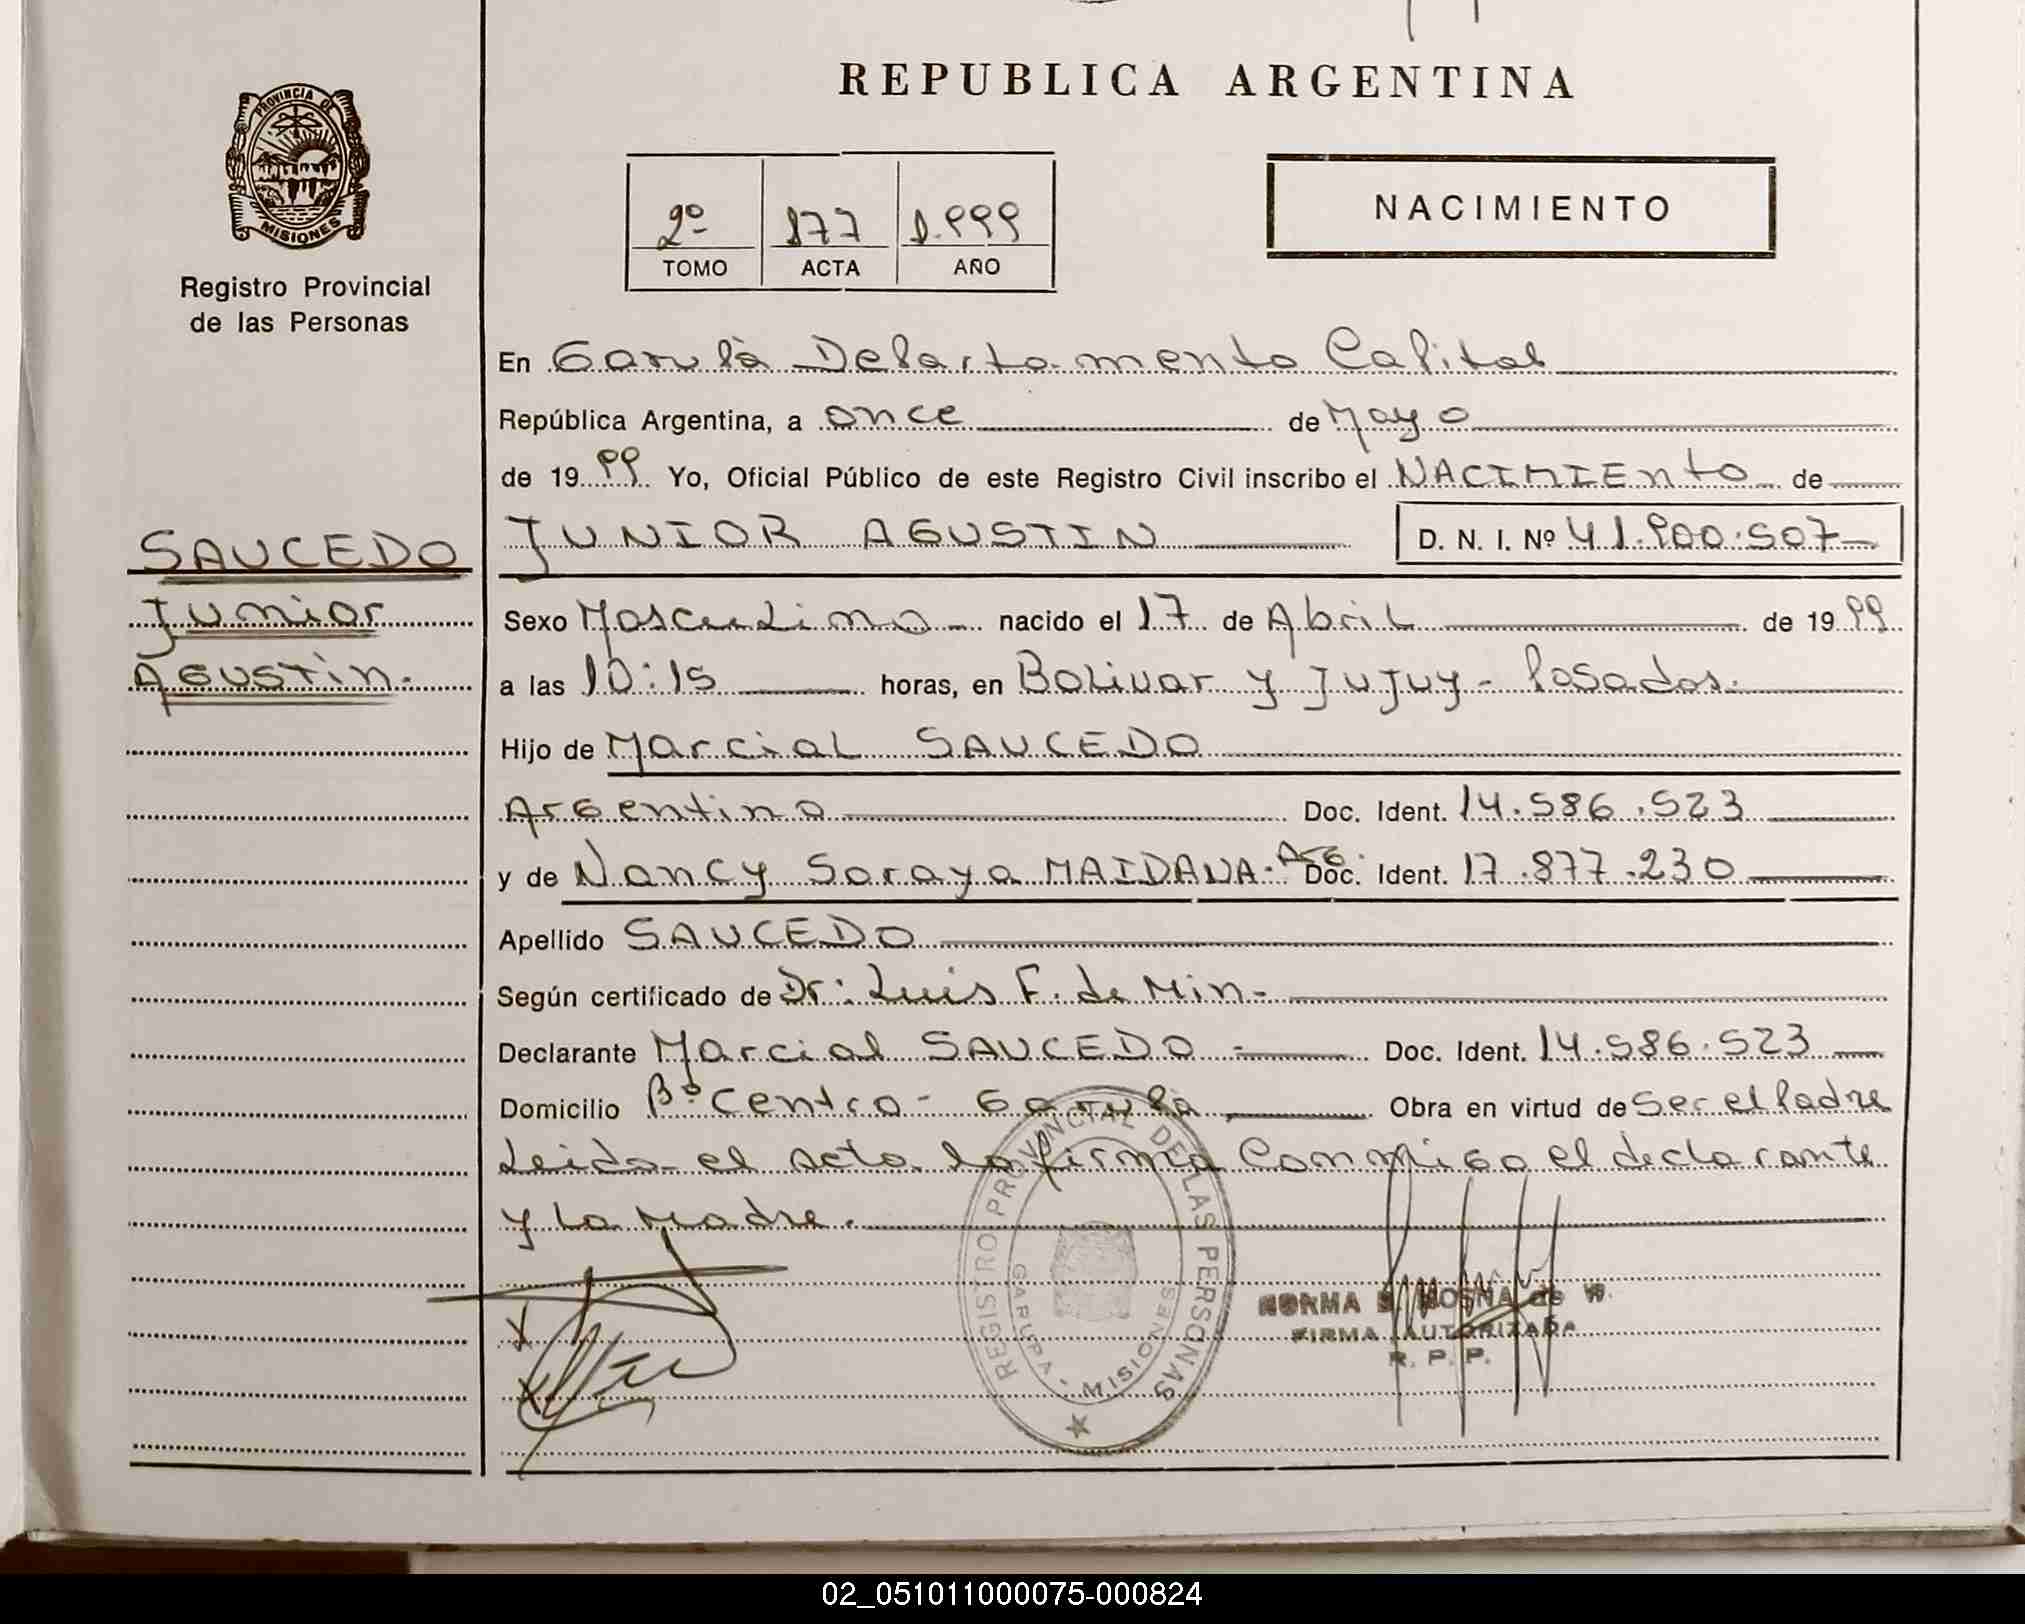 REPUBLICA ARGENTINA
PROVINCIA DE MISIONES
Registro Provincial
de las Personas
2º 177 1.999
TOMO ACTA AÑO
NACIMIENTO
En Garupá Departamento Capital
República Argentina, a once de Mayo
de 1999 Yo, Oficial Público de este Registro Civil inscribo el NACIMIENTO de
JUNIOR AGUSTIN D. N. I. Nº 41.900.507
SAUCEDO
Junior
Agustin.
Sexo Masculino nacido el 17 de Abril de 1999
a las 10:15 horas, en Bolivar y Jujuy - Posadas.
Hijo de Marcial SAUCEDO
Argentino Doc. Ident. 14.586.523
y de Nancy Soraya MAIDANA. Arg. Doc. Ident. 17.877.230
Apellido SAUCEDO
Según certificado de Dr: Luis F. de Min.
Declarante Marcial SAUCEDO Doc. Ident. 14.586.523
Domicilio Bº Centro - Garupá Obra en virtud de Ser el Padre
Leida el acta la firma Conmigo el declarante
y la Madre.
REGISTRO PROVINCIAL DE LAS PERSONAS
GARUPA - MISIONES
NORMA MOSNA de W.
FIRMA AUTORIZADA
R. P. P.
02_051011000075-000824